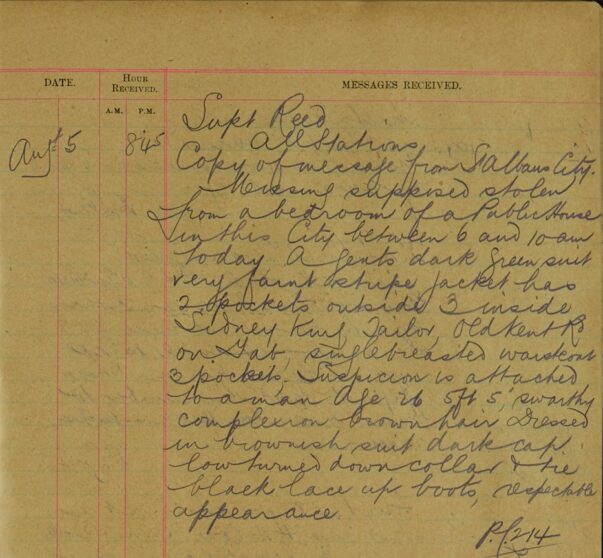 DATE. HOUR RECEIVED. MESSAGES RECEIVED.
A.M. P.M.
Supt Reed
All Stations
Augt 5 8.45
Copy of message from St Albans City.
Missing supposed stolen
from a bedroom of a Public House
in this City between 6 and 10 am
today A gents dark green suit
very faint stripe jacket has
2 pockets outside 3 inside
Sidney King, Tailor, Old Kent Rd
on Tab, singlebreasted waistcoat
3 pockets. Suspicion is attached
to a man Age 26 5ft 5, swarthy
complexion brown hair Dressed
in brownish suit dark cap
low turned down collar & tie
black lace up boots, respectable
appearance
P.C. 214